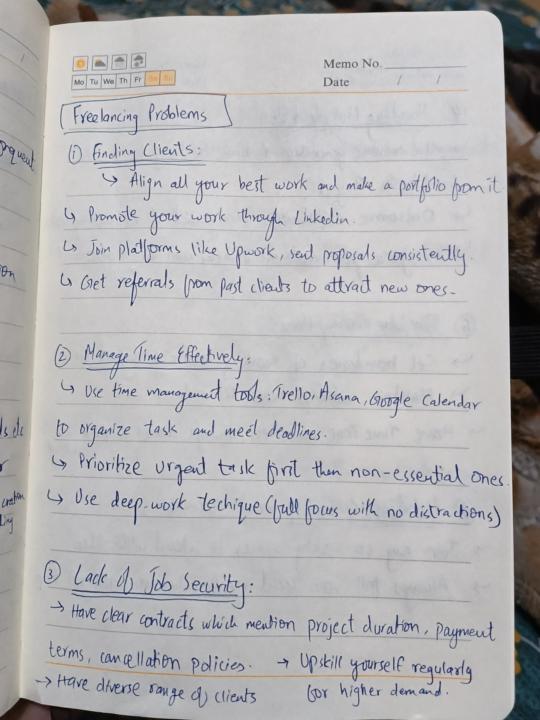 Memo No.
Mo Tu We Th Fr Sa Su
Date / /
Freelancing Problems
① Finding Clients:
↳ Align all your best work and make a portfolio from it
↳ Promote your work through Linkedin.
↳ Join platforms like Upwork, send proposals consistently.
↳ Get referrals from past clients to attract new ones.
② Manage Time Effectively:
↳ Use time management tools: Trello, Asana, Google Calendar
to organize task and meet deadlines.
↳ Prioritize urgent task first then non-essential ones.
↳ Use deep work techique (full focus with no distractions)
③ Lack of Job Security:
→ Have clear contracts which mention project duration, payment
terms, cancellation policies. → Upskill yourself regularly
→ Have diverse range of clients for higher demand.